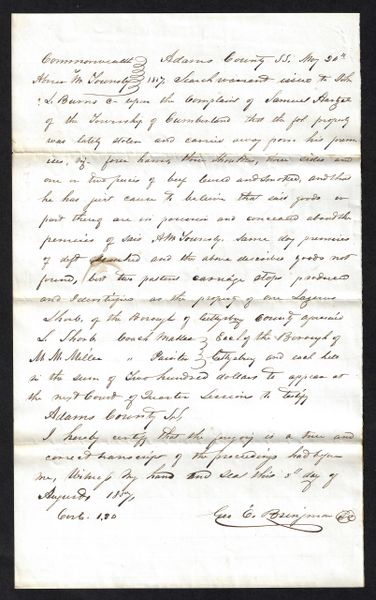 Commonwealth Adams County SS. May 20th
Abner M Townsly 1857. Search warrant issue to John
L Burns C. upon the Complain of Samuel Hartzel
of the Township of Cumberland that the fol property
was lately stolen and carried away from his prem
ises, viz four hams, three shoulders, three sides and
one or two pieces of beef cured and smoked, and that
he has just cause to believe that said goods or
part thereof are in possession and concealed about the
premises of said A M Townsly. Same day premises
of deft searched and the above describe goods not
found, but two patent carriage stops produced
and Identified as the property of one Lazerus
Shorb, of the Borough of Gettysburg County aforesaid
L Shorb Coach Maker Each of the Borough of
M. M. Miller " Painter Gettysburg and each held
in the sum of Two hundred dollars to appear at
the next Court of Quarter Sessions to testify
Adams County SS
I hereby certify that the foregoing is a true and
correct transcript of the proceedings had before
me, Witness My hand and seal this 3d day of
August 1857,
Cost. 1.20 Geo E. Bringman